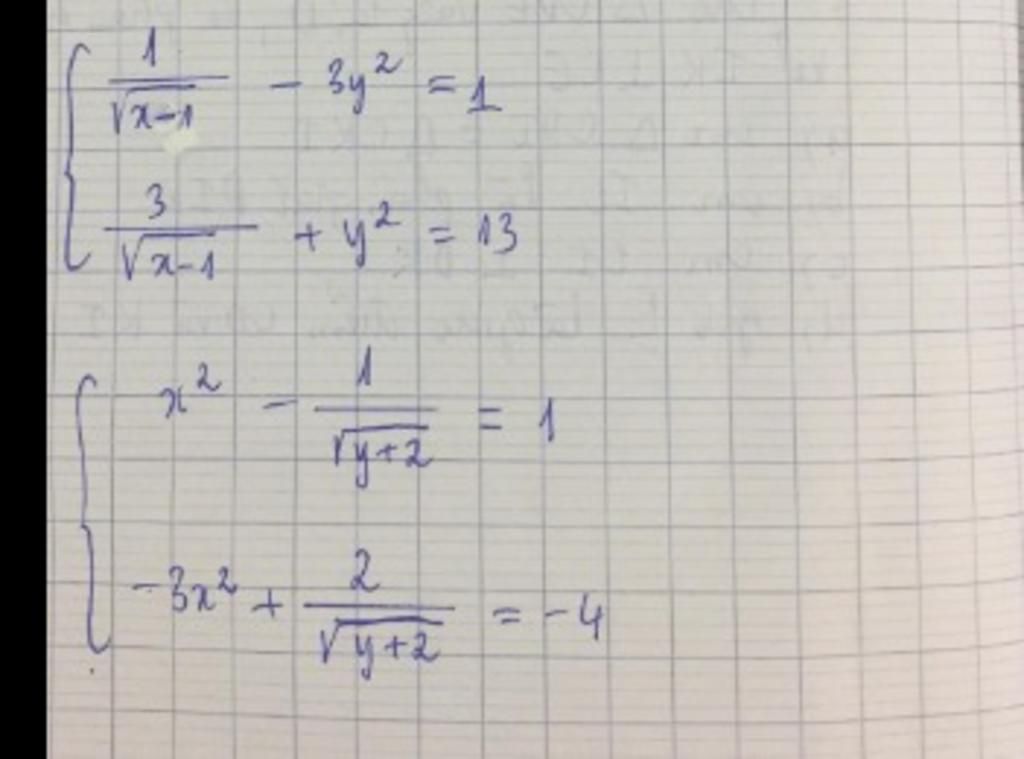 1/√(x-1) - 3y² = 1
3/√(x-1) + y² = 13
x² - 1/√(y+2) = 1
-3x² + 2/√(y+2) = -4